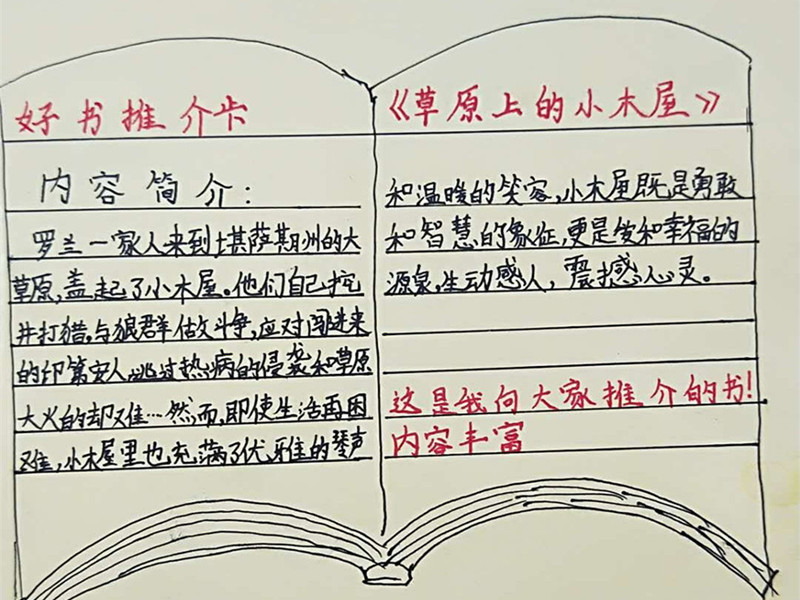 好书推介卡
内容简介：
罗兰一家人来到堪萨斯州的大
草原，盖起了小木屋。他们自己挖
井打猎，与狼群做斗争，应对闯进来
的印第安人，逃过热病的侵袭和草原
大火的却难…然而，即使生活再困
难，小木屋里也充满了优雅的琴声
《草原上的小木屋》
和温暖的笑容，小木屋既是勇敢
和智慧的象征，更是安和幸福的
源泉，生动感人，震撼人心灵。
这是我向大家推介的书！
内容丰富